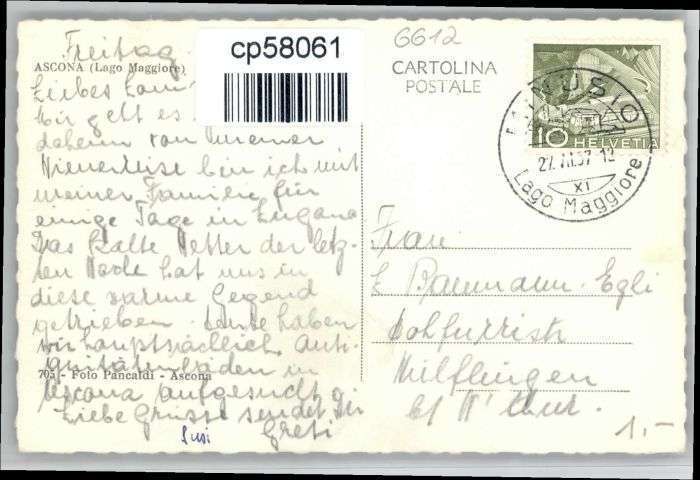 Freitag
cp58061
6612
ASCONA (Lago Maggiore)
CARTOLINA
POSTALE
MINUSIO
27.VII.57-12
XI
Lago Maggiore
10 HELVETIA
Liebes
Wir geht es
daheim von meiner
Wienerreise bin ich mit
meiner Familie für
einige Tage in Lugano
Das kalte Wetter der letz-
ten Woche hat uns in
diese warme Gegend
getrieben. Heute haben
wir hauptsächlich Anti-
quitätenläden in
705 - Foto Pancaldi - Ascona
Ascona aufgesucht
Liebe Grüsse sendet Dir
Greti
Susi
Frau
E Baumann-Egli
Wülflingen
b/ W'thur.
1.-